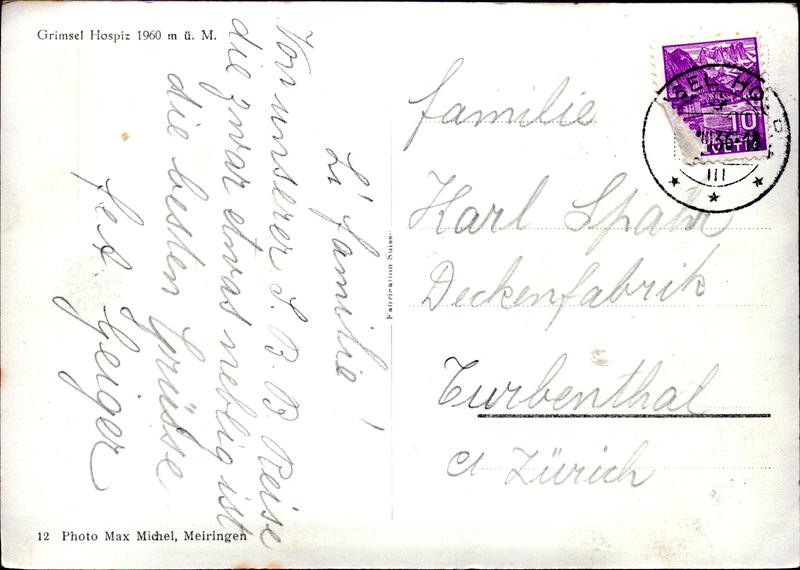 Grimsel Hospiz 1960 m ü. M.
L' familie!
Von unserer S. B. B Reise
die zwar etwas neblig ist
die besten Grüsse
Geiger
12 Photo Max Michel, Meiringen
Fabrication Suisse
familie
Karl Spahr
Deckenfabrik
Turbenthal
Zürich
10
III